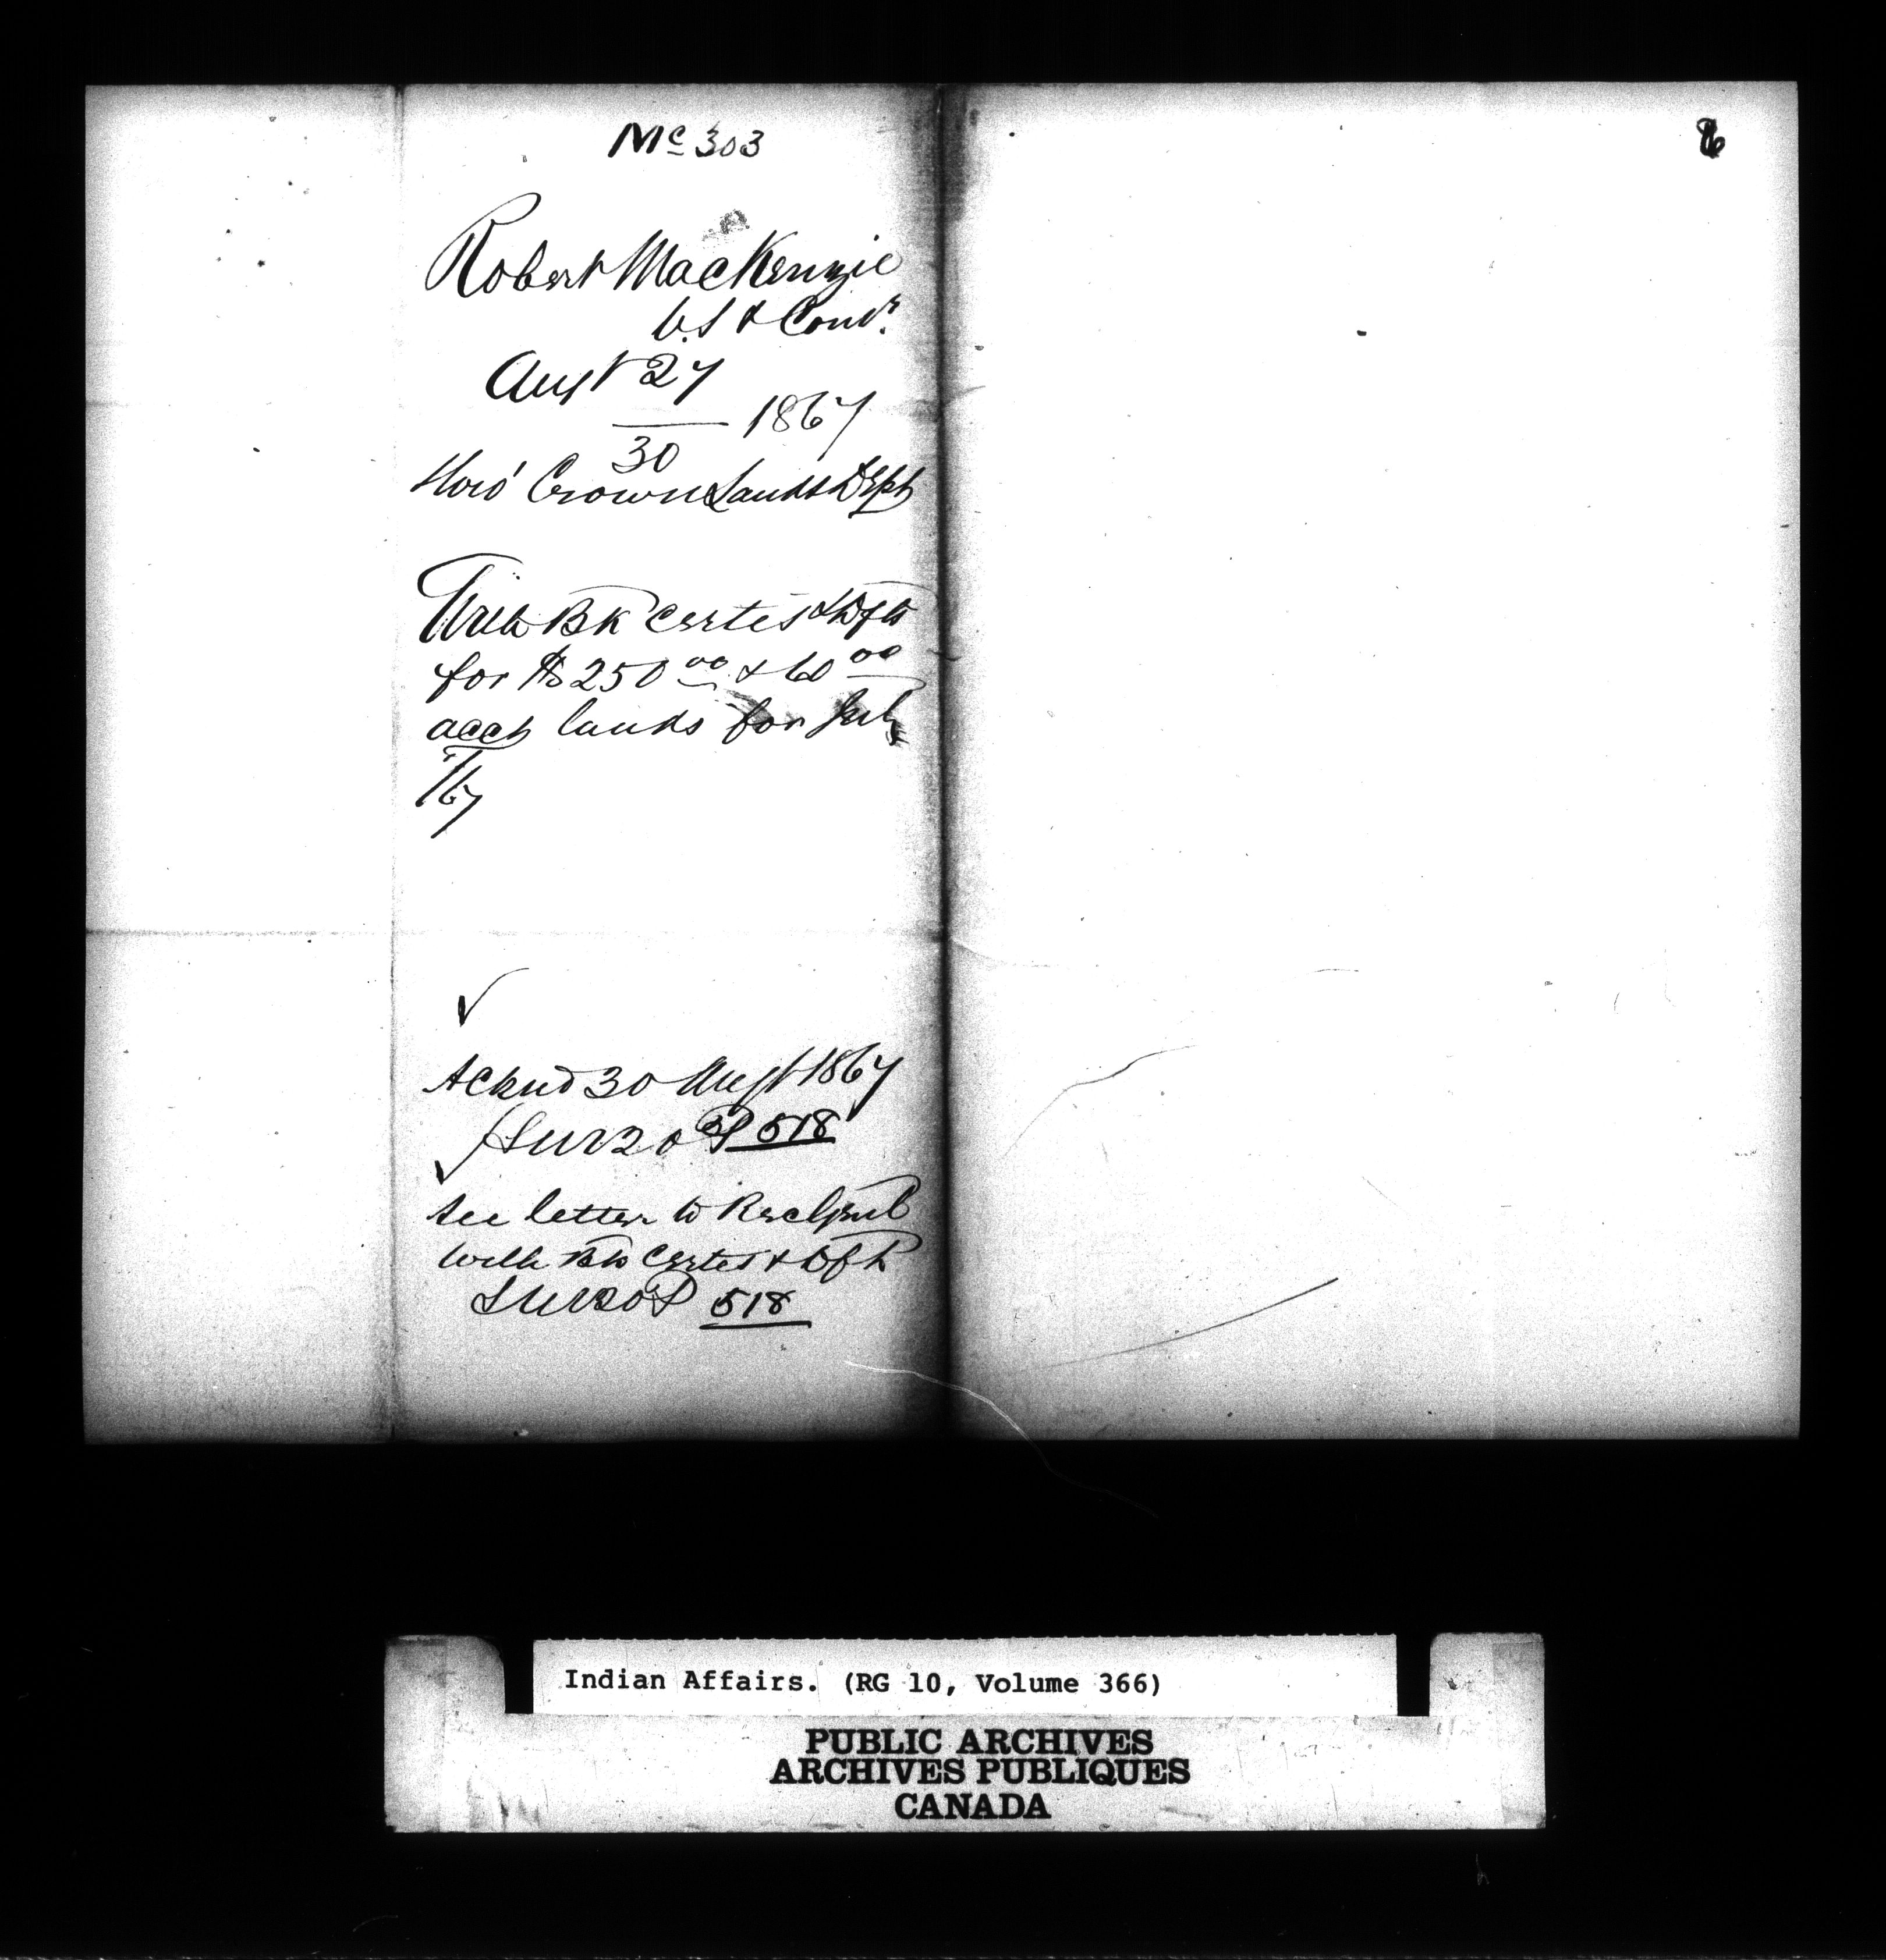 Mc 303
Robert MacKenzie
Augt 27
1867
30
Crown Lands Dept
With Bk Certes & Dfts
for $250 00 & 60 00
acct lands for July
/67
Acknd 30 Augt 1867
518
See letter to Rec Genl
with Bk Certes & Dft
518
Indian Affairs. (RG 10, Volume 366)
PUBLIC ARCHIVES
ARCHIVES PUBLIQUES
CANADA